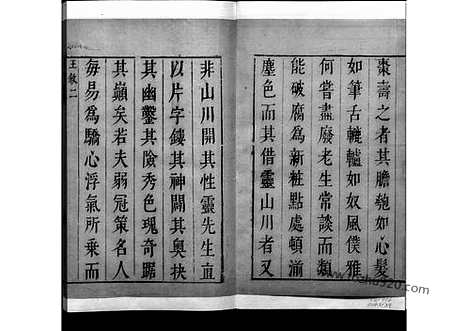 棗壽之者其膽魂如心髮
如筆舌轆轤如奴風僕雅
何嘗盡廢老生常談而類
能破腐為新粧點處頓湔
塵色而其借靈山川者又
非山川開其性靈先生直
以片字鏤其神闢其奥抉
其幽鑿其險秀色瑰奇踞
其巔矣若夫弱冠策名人
每易為驕心浮氣所乗而
王敘二